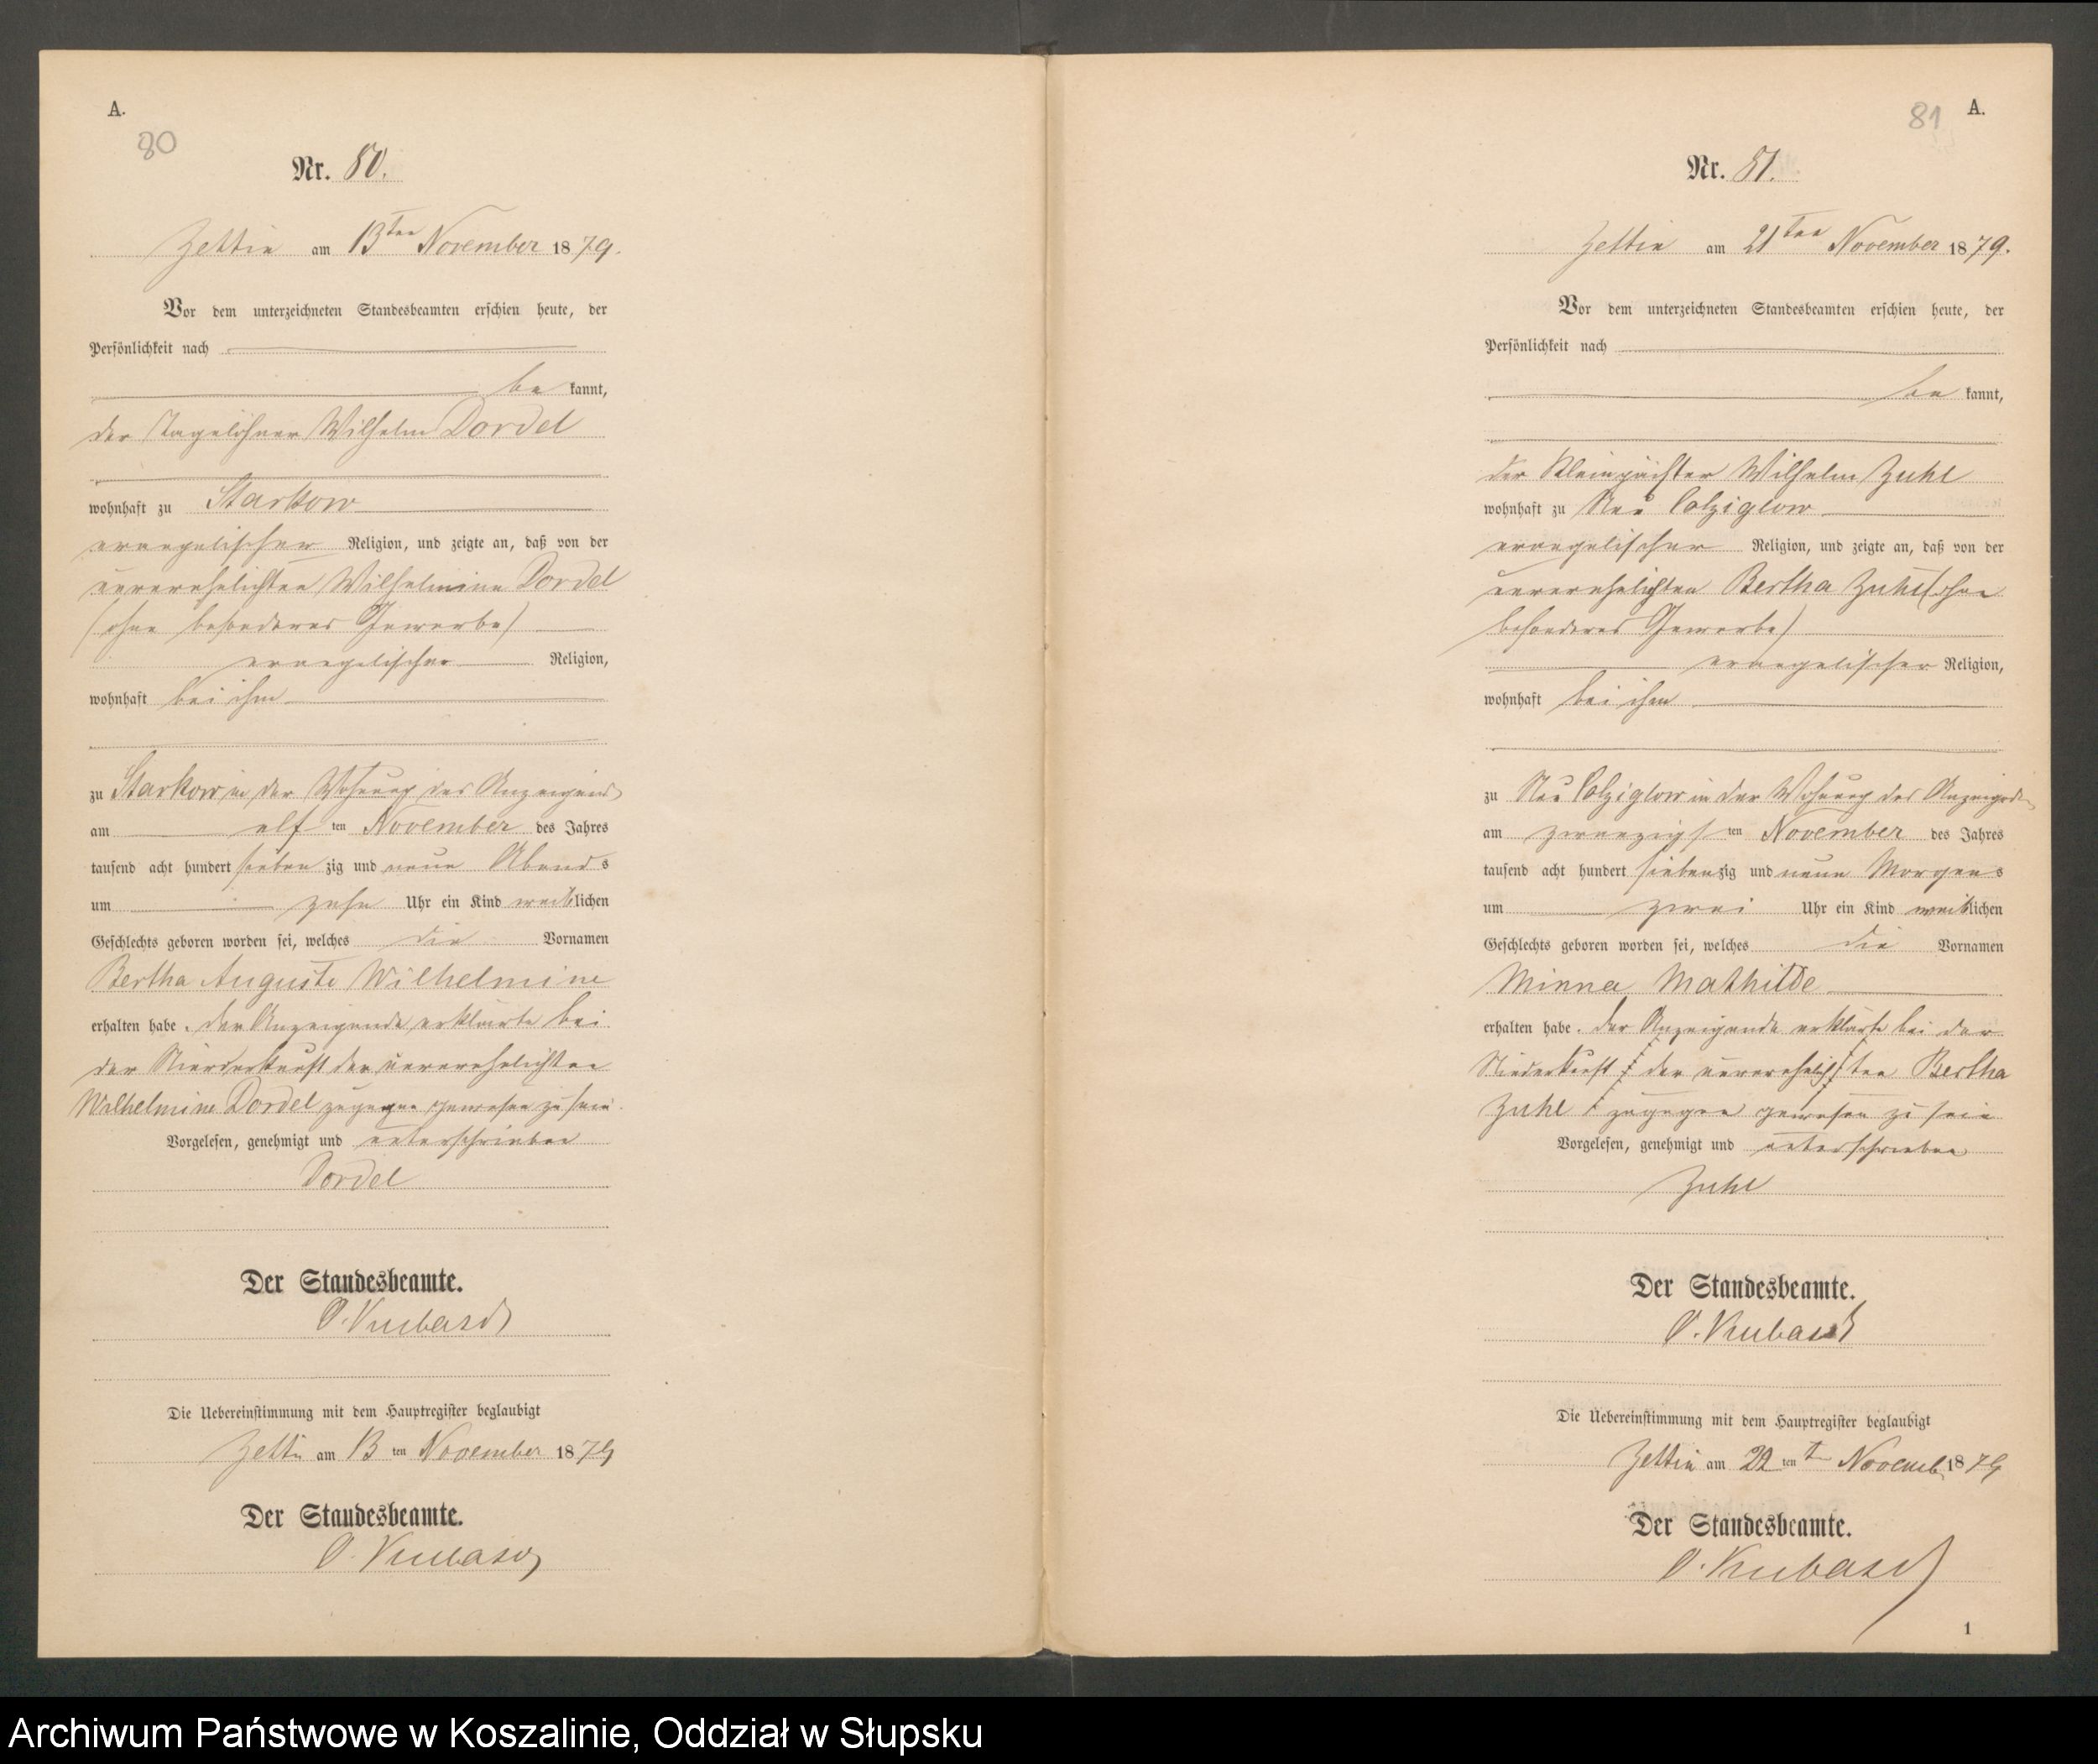 A.
80
Nr. 80.
Zettin am 13ten November 1879.
Vor dem unterzeichneten Standesbeamten erschien heute, der
Persönlichkeit nach
be kannt,
der Tagelöhner Wilhelm Dordel
wohnhaft zu Starkow
evangelischer Religion, und zeigte an, daß von der
unverehelichten Wilhelmine Dordel
(ohne besonderes Gewerbe)
evangelischer Religion,
wohnhaft bei ihm
zu Starkow in der Wohnung des Anzeigend
am elf ten November des Jahres
tausend acht hundert sieben zig und neun Abends
um zehn Uhr ein Kind weiblichen
Geschlechts geboren worden sei, welches die Vornamen
Bertha Auguste Wilhelmine
erhalten habe. der Anzeigende erklärte bei
der Niederkunft der unverehelichten
Wilhelmine Dordel zugegen gewesen zu sein.
Vorgelesen, genehmigt und unterschrieben
Dordel
Der Standesbeamte.
O. Kubasch
Die Uebereinstimmung mit dem Hauptregister beglaubigt
Zettin am 13 ten November 1879
Der Standesbeamte.
O. Kubasch
81
A.
Nr. 81.
Zettin am 21ten November 1879.
Vor dem unterzeichneten Standesbeamten erschien heute, der
Persönlichkeit nach
be kannt,
der Kleinpächter Wilhelm Zuhl
wohnhaft zu Neu Colziglow
evangelischer Religion, und zeigte an, daß von der
unverehelichten Bertha Zuhl (ohne
besonderes Gewerbe)
evangelischer Religion,
wohnhaft bei ihm
zu Neu Colziglow in der Wohnung des
am zwanzigs ten November des Jahres
tausend acht hundert sieben zig und neun Morgens
um zwei Uhr ein Kind weiblichen
Geschlechts geboren worden sei, welches die Vornamen
Minna Mathilde
erhalten habe. der Anzeigende erklärte bei der
Niederkunft der unverehelichten Bertha
Zuhl zugegen gewesen zu sein
Vorgelesen, genehmigt und unterschrieben
Zuhl
Der Standesbeamte.
O. Kubasch
Die Uebereinstimmung mit dem Hauptregister beglaubigt
Zettin am 22 ten Novemb 1879
Der Standesbeamte.
O. Kubasch
1
Archiwum Państwowe w Koszalinie, Oddział w Słupsku